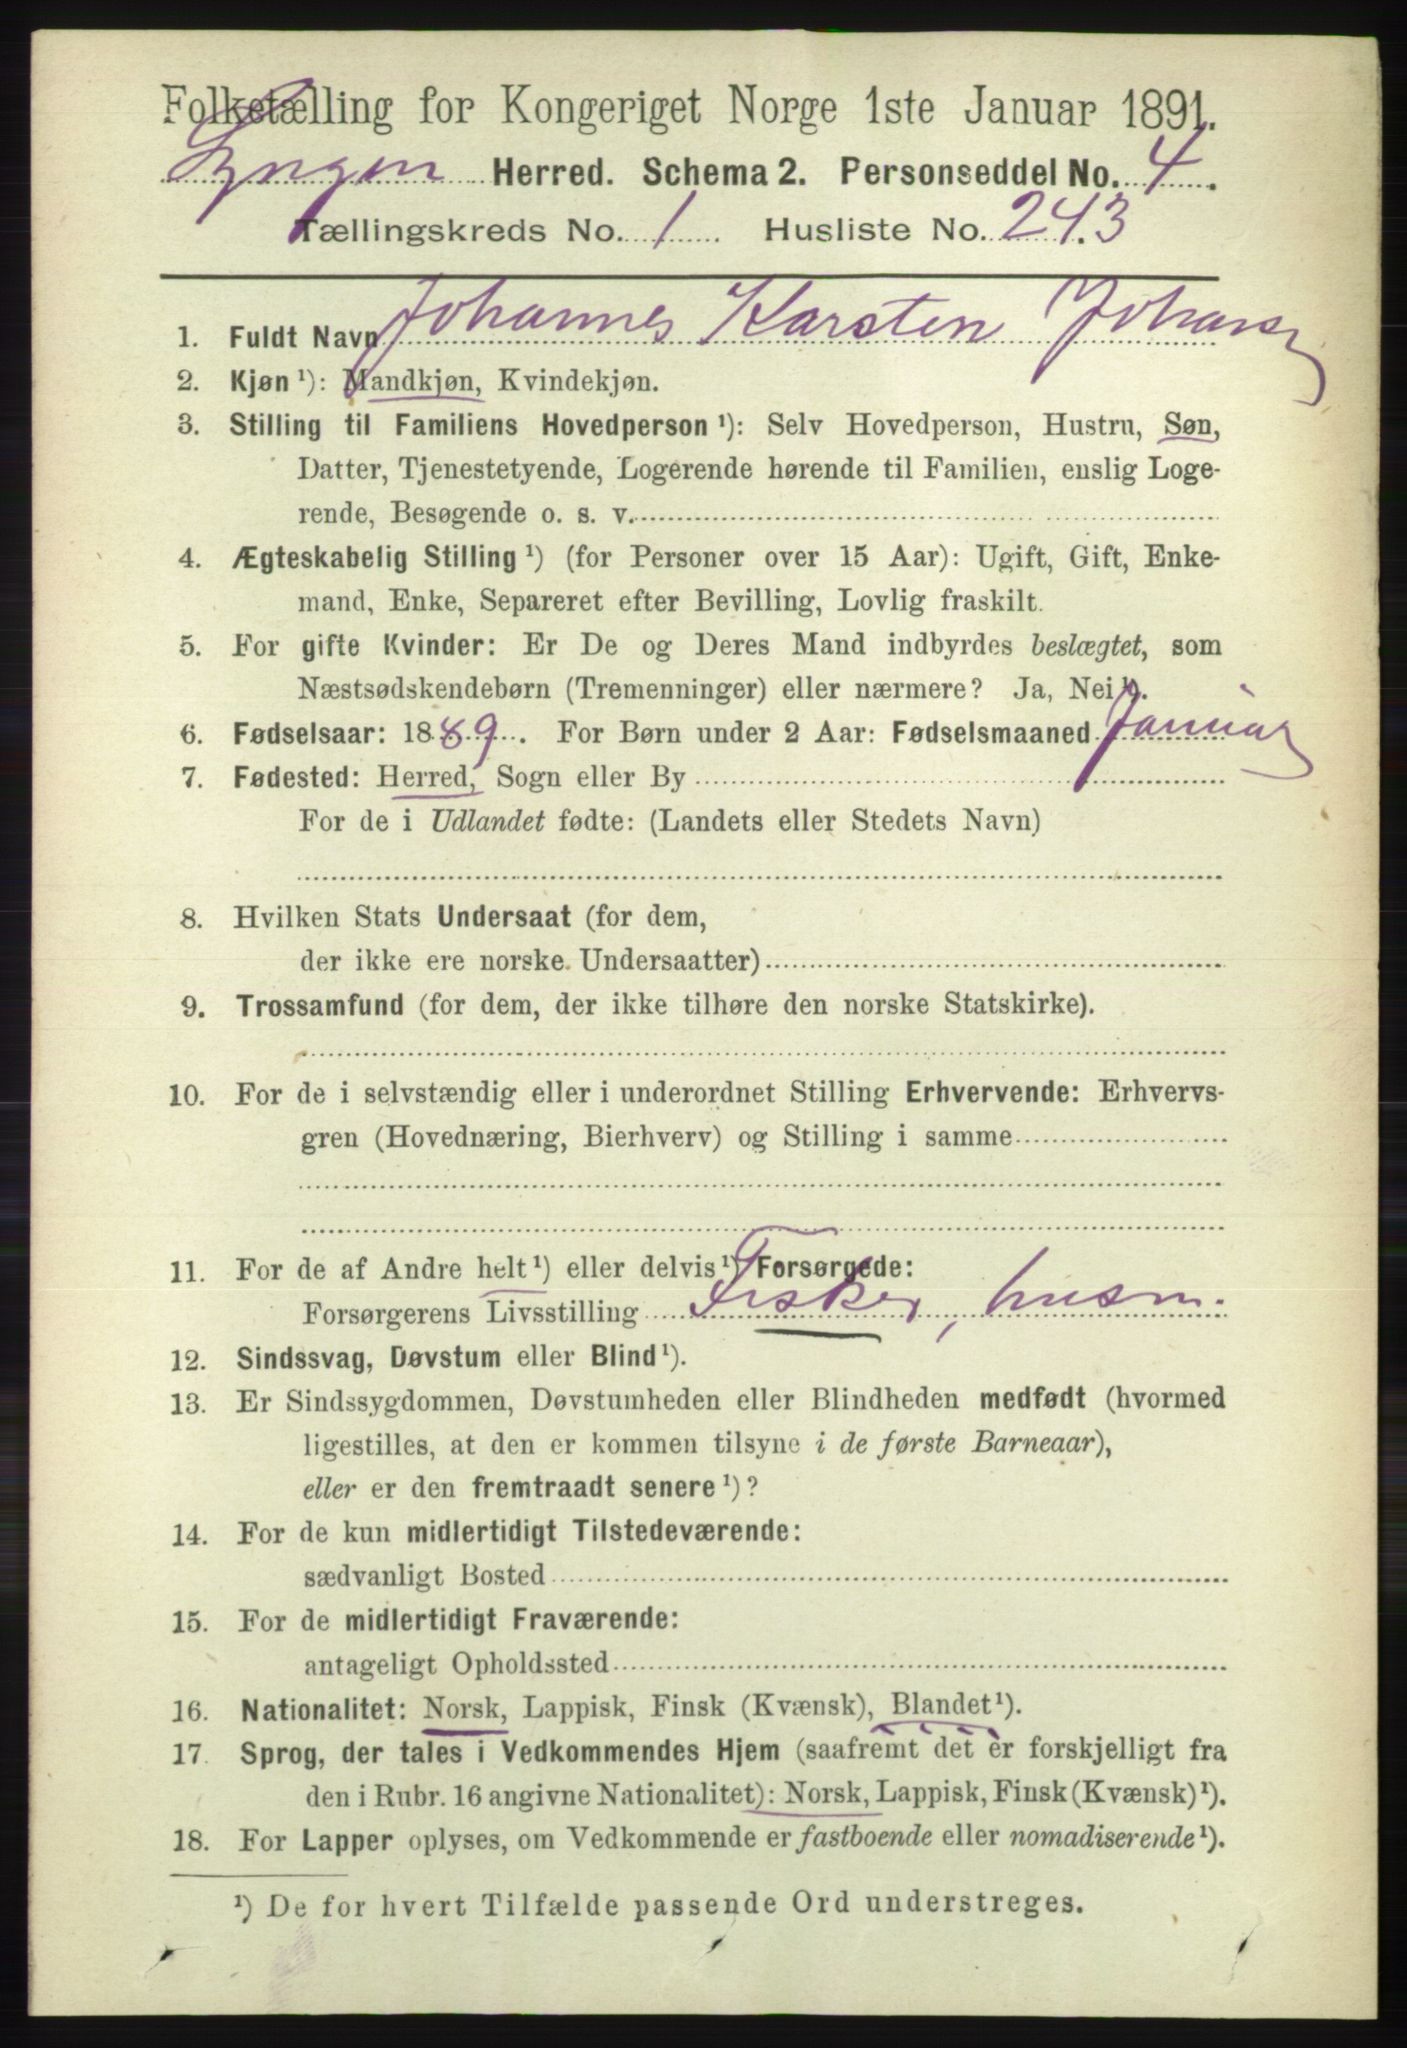 Folketælling for Kongeriget Norge 1ste Januar 1891.
Lyngen Herred. Schema 2. Personseddel No. 4.
Tællingskreds No. 1 Husliste No. 243
1. Fuldt Navn Johannes Karsten Johans
2. Kjøn ¹): Mandkjøn, Kvindekjøn.
3. Stilling til Familiens Hovedperson ¹): Selv Hovedperson, Hustru, Søn,
Datter, Tjenestetyende, Logerende hørende til Familien, enslig Loge-
rende, Besøgende o. s. v.
4. Ægteskabelig Stilling ¹) (for Personer over 15 Aar): Ugift, Gift, Enke-
mand, Enke, Separeret efter Bevilling, Lovlig fraskilt.
5. For gifte Kvinder: Er De og Deres Mand indbyrdes beslægtet, som
Næstsødskendebørn (Tremenninger) eller nærmere? Ja, Nei ¹).
6. Fødselsaar: 1889. For Børn under 2 Aar: Fødselsmaaned Januar
7. Fødested: Herred, Sogn eller By
For de i Udlandet fødte: (Landets eller Stedets Navn)
8. Hvilken Stats Undersaat (for dem,
der ikke ere norske Undersaatter)
9. Trossamfund (for dem, der ikke tilhøre den norske Statskirke).
10. For de i selvstændig eller i underordnet Stilling Erhvervende: Erhvervs-
gren (Hovednæring, Bierhverv) og Stilling i samme
11. For de af Andre helt ¹) eller delvis ¹) Forsørgede:
Forsørgerens Livsstilling Fisker, husm.
12. Sindssvag, Døvstum eller Blind ¹).
13. Er Sindssygdommen, Døvstumheden eller Blindheden medfødt (hvormed
ligestilles, at den er kommen tilsyne i de første Barneaar),
eller er den fremtraadt senere ¹)?
14. For de kun midlertidigt Tilstedeværende:
sædvanligt Bosted
15. For de midlertidigt Fraværende:
antageligt Opholdssted
16. Nationalitet: Norsk, Lappisk, Finsk (Kvænsk), Blandet ¹).
17. Sprog, der tales i Vedkommendes Hjem (saafremt det er forskjelligt fra
den i Rubr. 16 angivne Nationalitet): Norsk, Lappisk, Finsk (Kvænsk) ¹).
18. For Lapper oplyses, om Vedkommende er fastboende eller nomadiserende ¹).
¹) De for hvert Tilfælde passende Ord understreges.